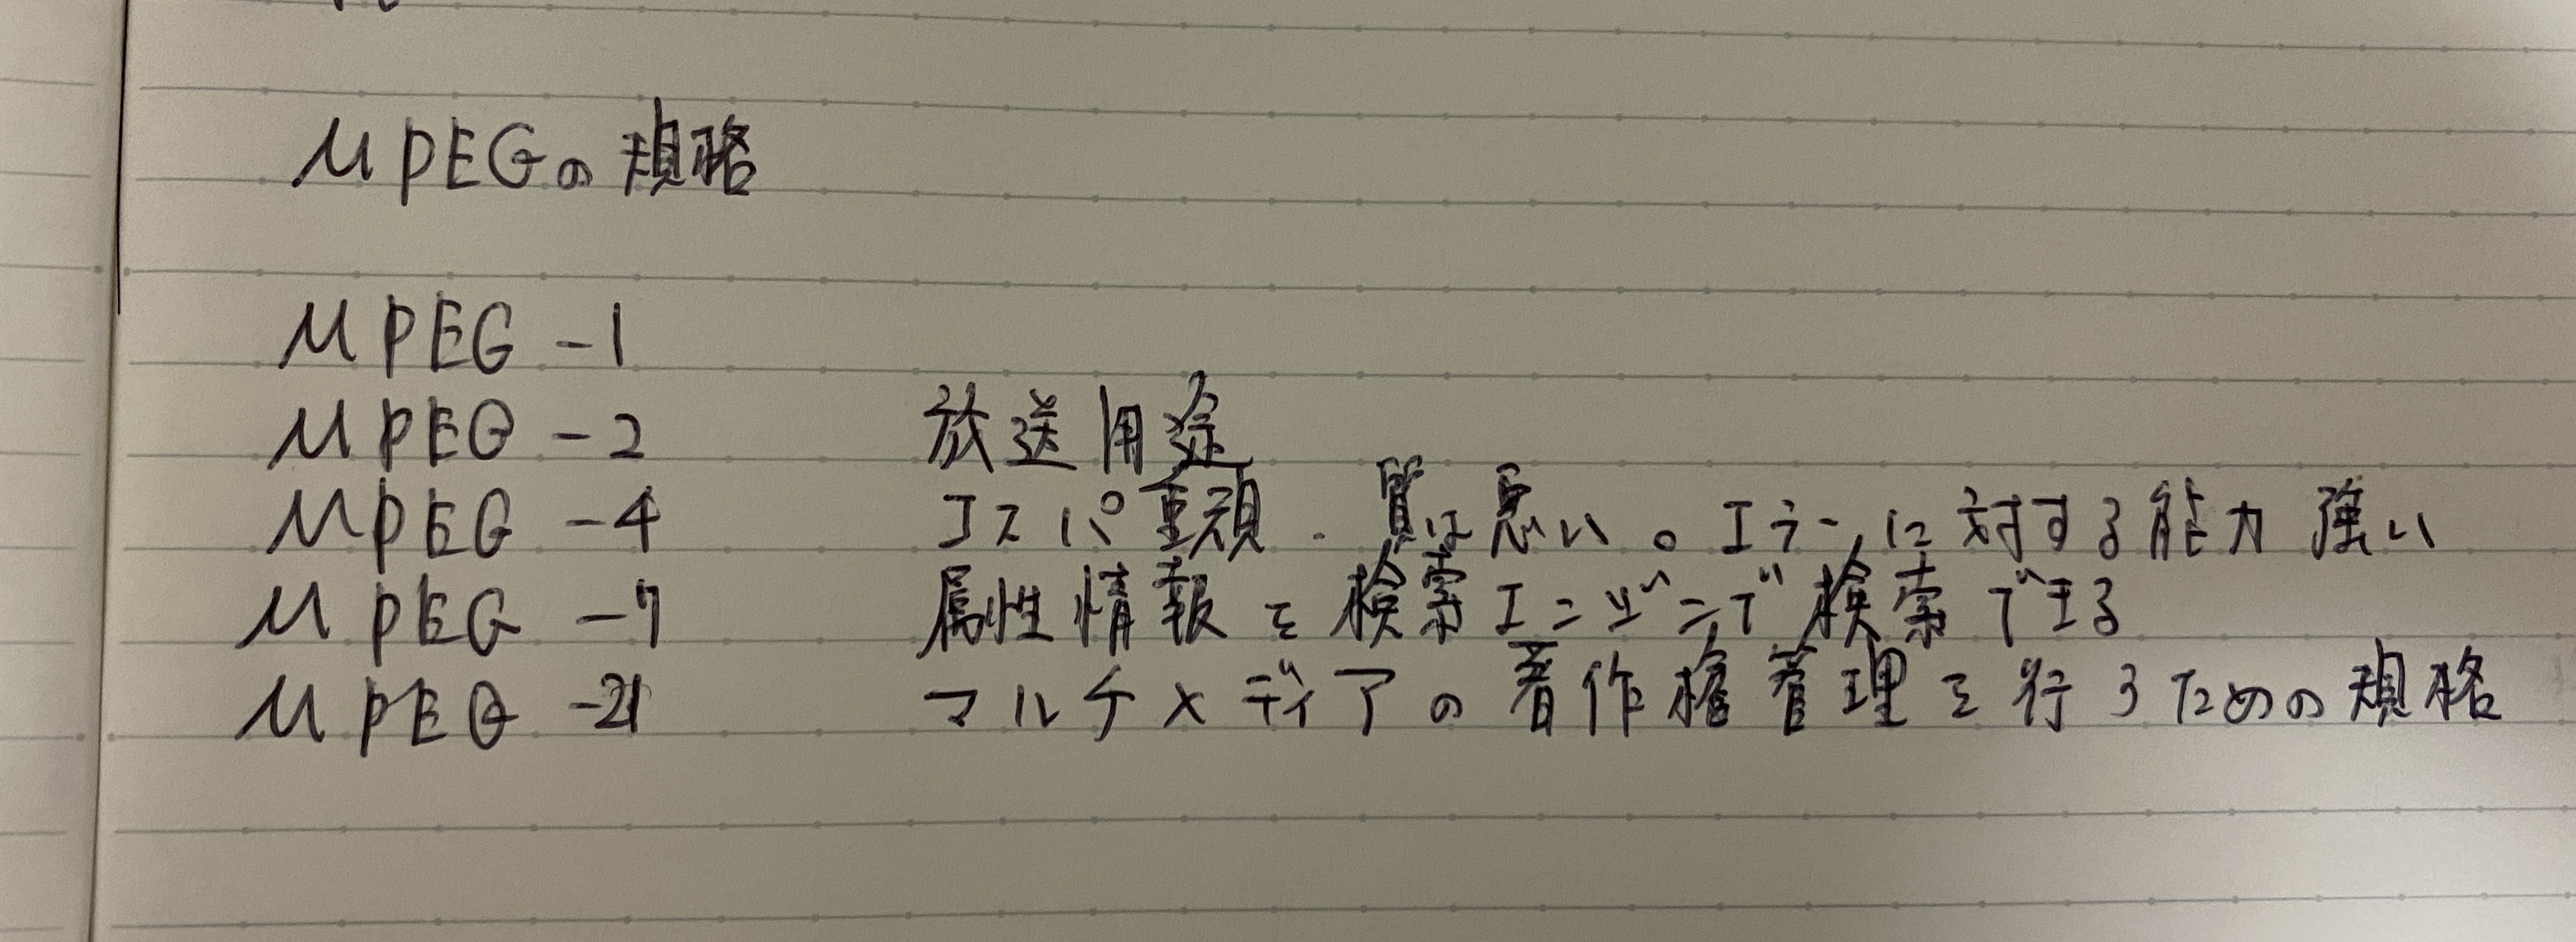 MPEGの規格
MPEG -1
MPEG -2 放送用途
MPEG -4 コスパ重視. 質は悪い。エラーに対する能力強い
MPEG -7 属性情報を検索エンジンで検索できる
MPEG -21 マルチメディアの著作権管理を行うための規格